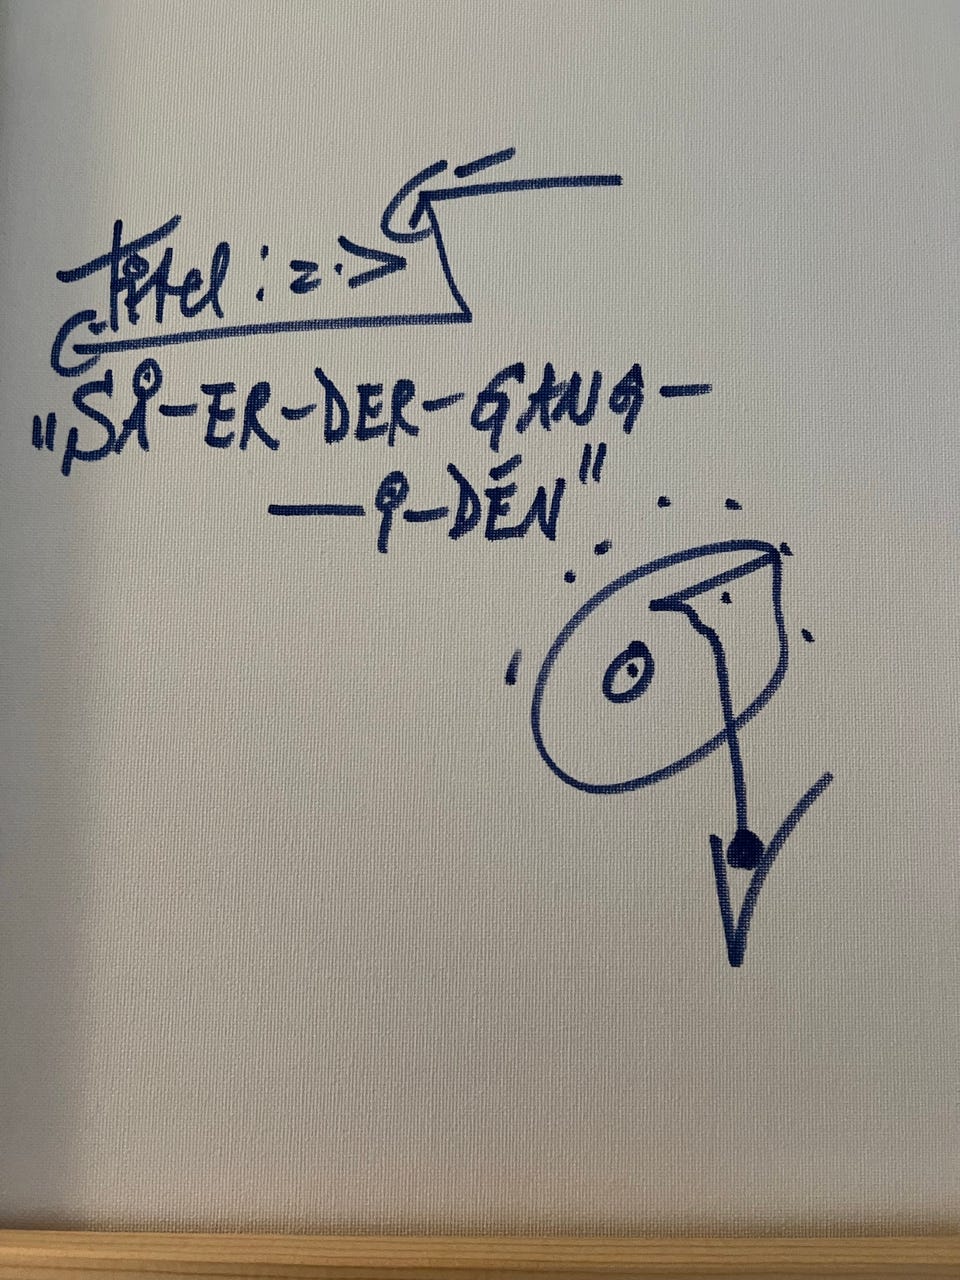 Titel : =.>
"SÅ-ER-DER-GANG-
—I-DÉN"